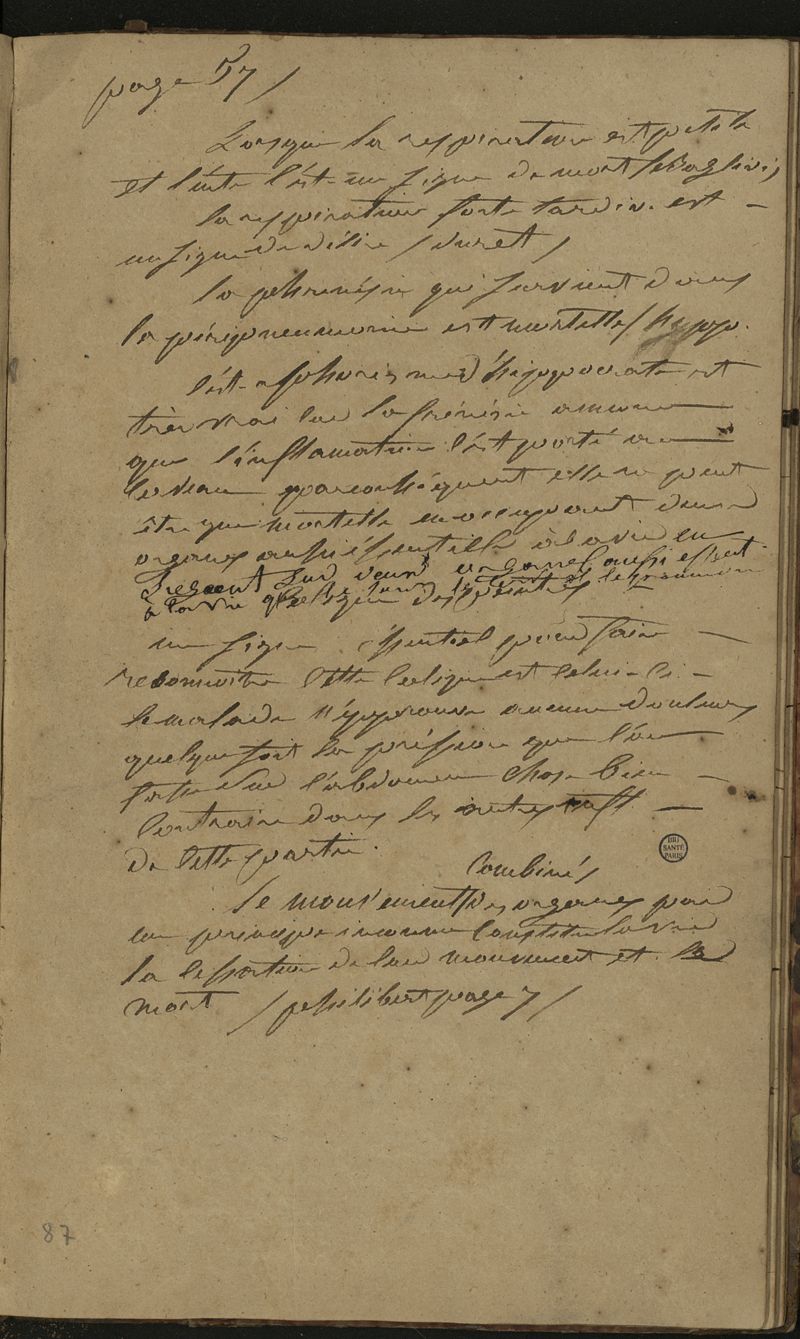 page 57 /
Lorsque la respiration est petite
et lente c'est un signe de mort / Baglivi /
la respiration forte tardive est
un signe de délire / duret /
la phrenésie qui survient dans
la péripneumonie est mortelle / hypp.
c'est aphorisme d'hippocrate est
très vrai car la frénésie annonce
que l'inflamation s'est porté au
cerveau par conséquent elle ne peut
être que mortelle en occupant un
organe aussi éssentielle à la vie
organe aussi essent
à la vie
un signe éssentiel pour faire
reconnoitre cette colique est celui ci
le malade n'épprouve aucune douleur
quelque soit la préssion que l'on
fasse sur l'abdomen chose bien
contraire dans les autres
de cette partie.
combinés
le mouvement des organes par
un principe inconnu constitue la vie
la cessation de leur mouvement est la
mort / philibert page 7 /
BIU
SANTÉ
PARIS
87